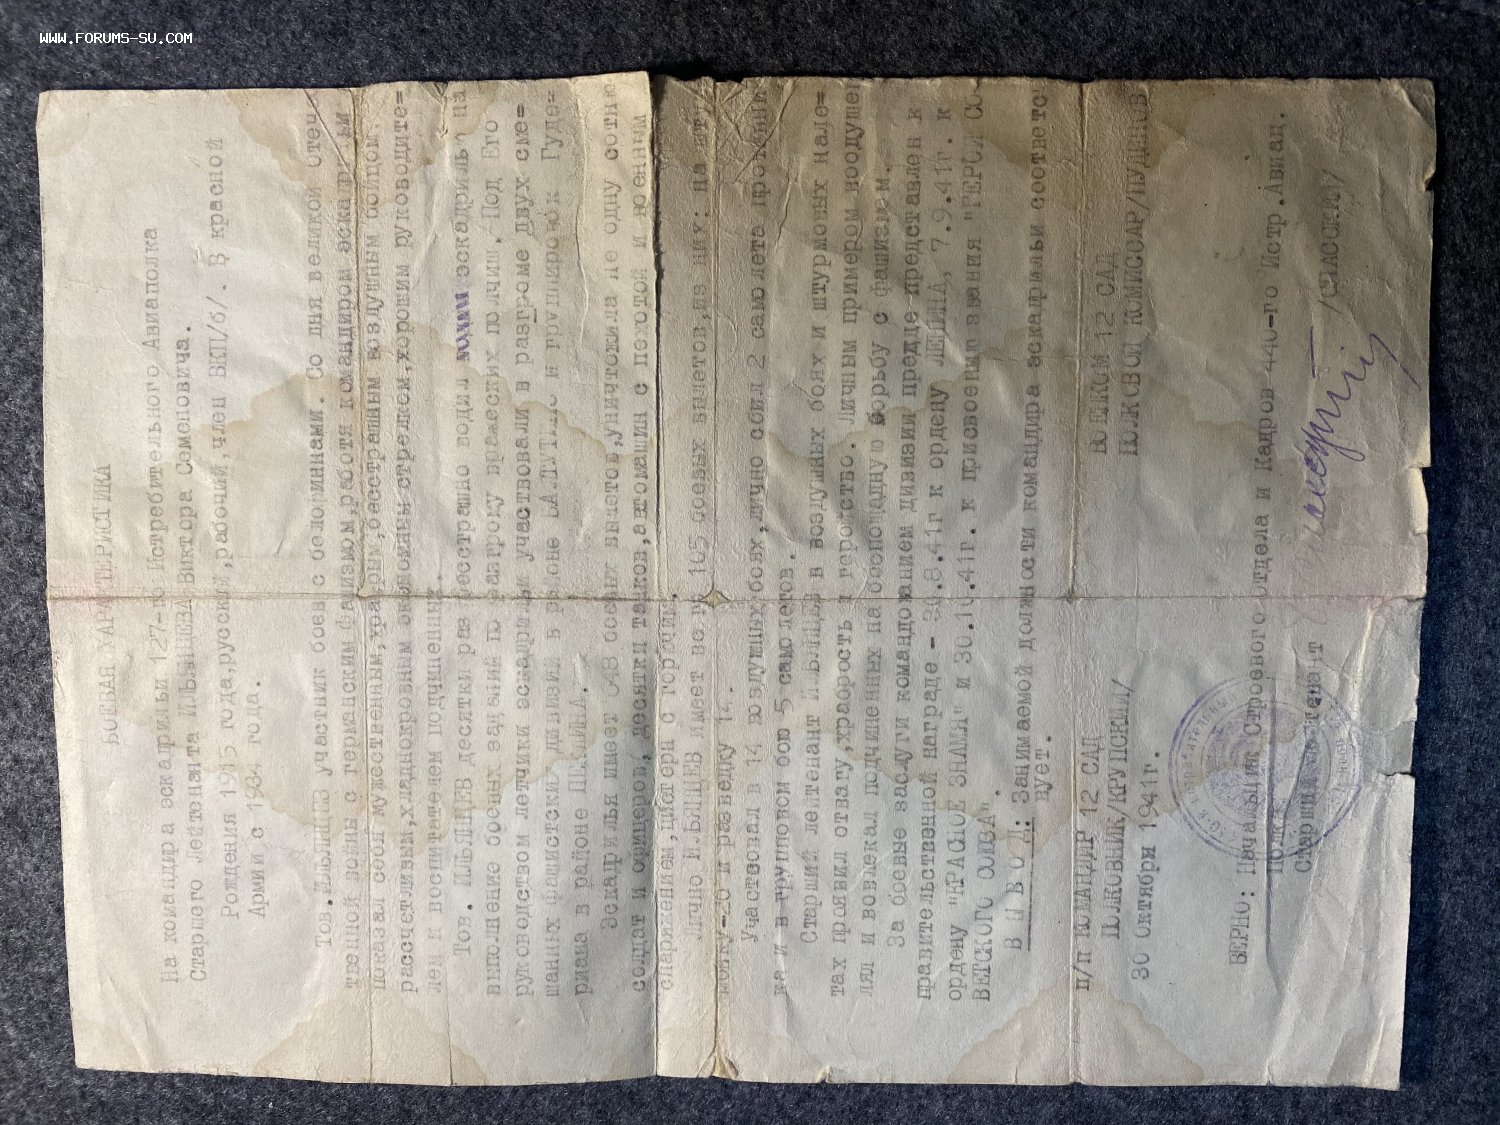 WWW.FORUMS-SU.COM
БОЕВАЯ ХАРАКТЕРИСТИКА
На командира эскадрильи 127-го Истребительного Авиаполка
Старшего Лейтенанта ИЛЬИЩЕВА Виктора Семеновича.
Рождения 1915 года, русский, рабочий, член ВКП/б/. В красной
Армии с 1934 года.
Тов. ИЛЬИЩЕВ участник боев с белофиннами. Со дня великой Отеч
твенной войны с германским фашизмом, работя командиром эскадрильи
показал себя мужественным, храбрым, бесстрашным воздушным бойцом,
рассчетливым, хладнокровным снайперским стрелком, хорошим руководите=
лем и воспитателем подчиненных.
Тов. ИЛЬИЩЕВ десятки раз бесстрашно водил эскадрилью на
выполнение боевых заданий по разгрому вражеских полчищ. Под Его
руководством летчики эскадрильи участвовали в разгроме двух сме=
шанных фашистских дивизий в районе и группировок Гуде=
риана в районе
Эскадрилья имеет боевых вылетов, уничтожила не одну сотню
солдат и офицеров, десятки танков, автомашин с пехотой и военным
снаряжением, цистерн с горючим.
Лично ИЛЬИЩЕВ имеет 105 боевых вылетов, из них: на штур
мовку-20 и разведку 14.
Участвовал в 14 воздушных боях, лично сбил 2 самолета противни
ка и в групповом бою 5 самолетов.
Старший лейтенант ИЛЬИЩЕВ в воздушных боях и штурмовых нале=
тах проявил отвагу, храбрость и геройство. Личным примером воодушев
лял и вовлекал подчиненных на беспощадную борьбу с фашизмом.
За боевые заслуги командованием дивизии представлен к
правительственной награде - 30.8.41г к ордену ЛЕНИНА, 7.9.41г. к
ордену "КРАСНОЕ ЗНАМЯ" и 30.10.41г. к присвоению звания "ГЕРОЙ СО-
ВЕТСКОГО СОЮЗА".
В Ы В О Д: Занимаемой должности командира эскадрильи соответст
вует.
п/п КОМАНДИР 12 САД ВОЕНКОМ 12 САД
ПОЛКОВНИК/КРУПСКИЙ/ ПОЛКОВОЙ КОМИССАР
30 октября 1941г.
ВЕРНО: Начальник Строевого отдела и Кадров 440-го Истр. Авиац.
Полка
Старший лейтенант /СПАССКИЙ/